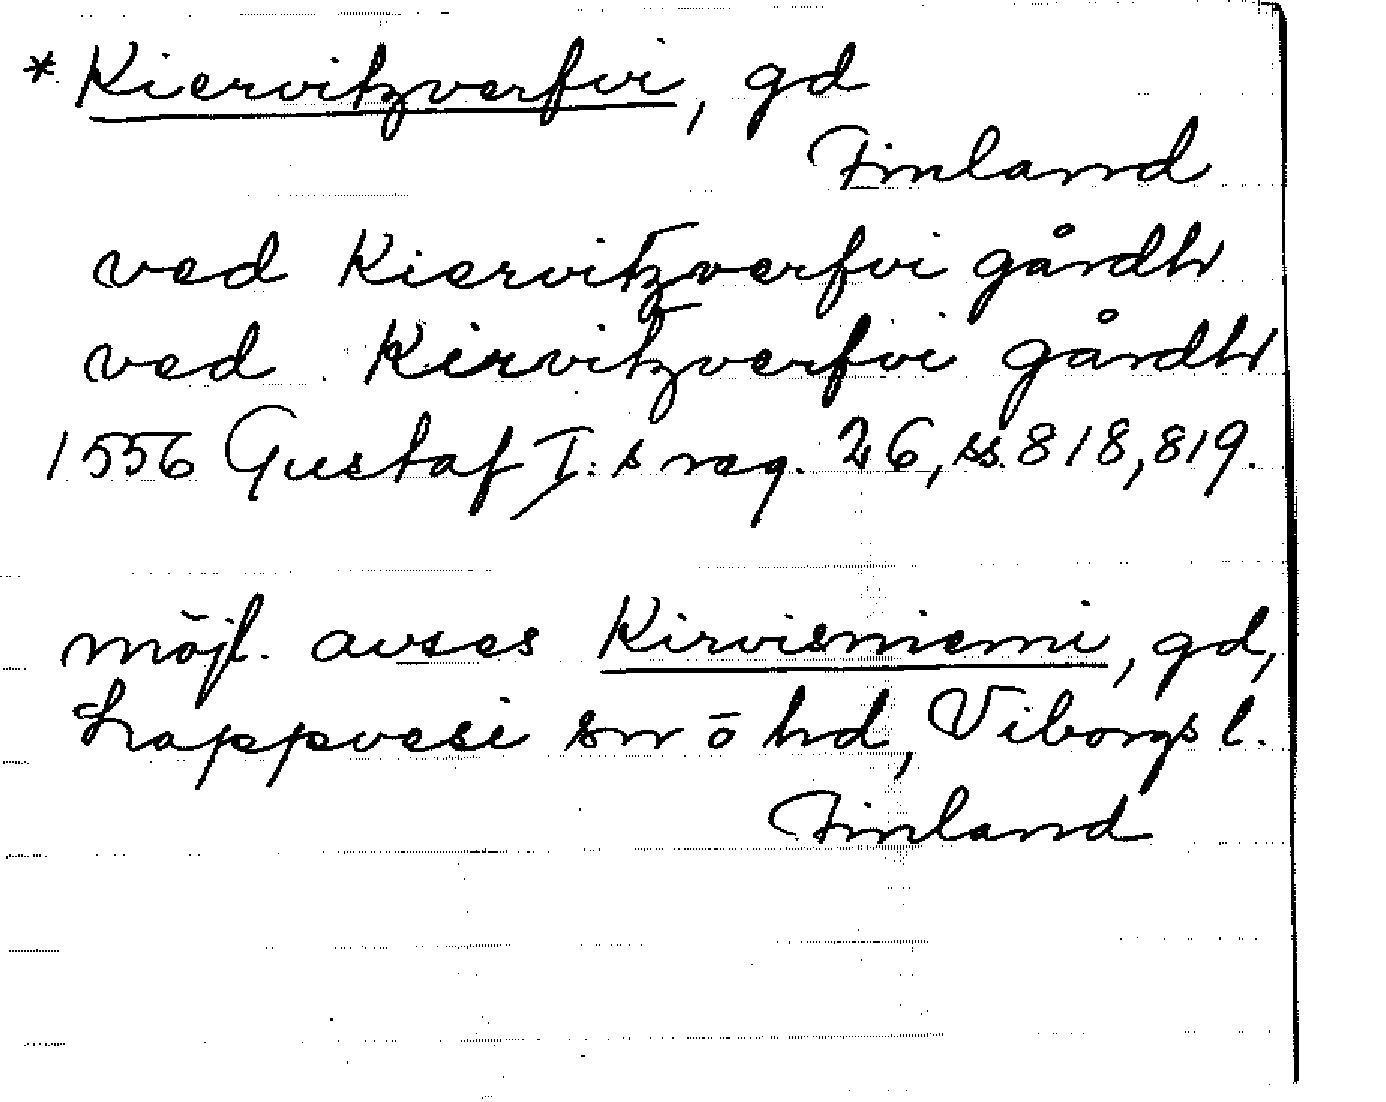 * Kiervitzverfvi, gd
Finland
ved Kiervitzverfvi gårdh
ved Kiervitzverfvi gårdh
1556 Gustaf I:s reg. 26, ss. 818, 819.
möjl. avses Kirvisniemi, gd,
Lappvesi sn o hd, Viborgs l.
Finland